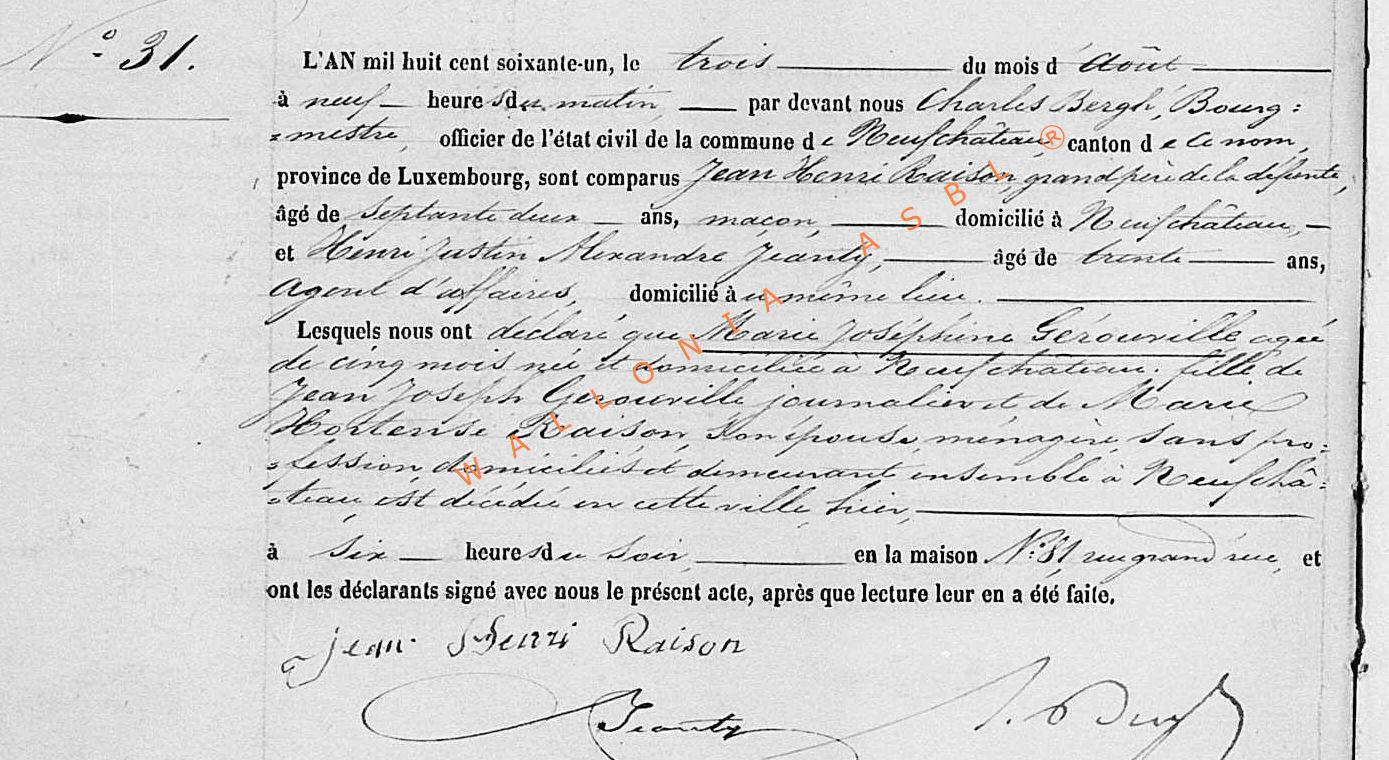 N° 31.
L'AN mil huit cent soixante-un, le trois du mois d'Août
à neuf heures du matin, par devant nous Charles Bergh, Bourg=
=mestre, officier de l'état civil de la commune de Neufchâteau, canton de ce nom,
province de Luxembourg, sont comparus Jean Henri Raison grand père de la défunte,
âgé de septante deux ans, maçon, domicilié à Neufchâteau,
et Henri Justin Alexandre Jeanty, âgé de trente ans,
Agent d'affaires, domicilié au même lieu.
Lesquels nous ont déclaré que Marie Joséphine Gérouville agée
de cinq mois née et domiciliée à Neufchâteau. fille de
Jean Joseph Gérouville journalier et de Marie
Hortense Raison, son épouse, ménagère sans pro=
=fession, domiciliés et demeurant ensemble à Neufchâ=
=teau, est décédée en cette ville, hier,
à six heures du soir, en la maison N° 81, rue grand rue, et
ont les déclarants signé avec nous le présent acte, après que lecture leur en a été faite.
Jean Henri Raison
Jeanty
WALLONIA ASBL ®